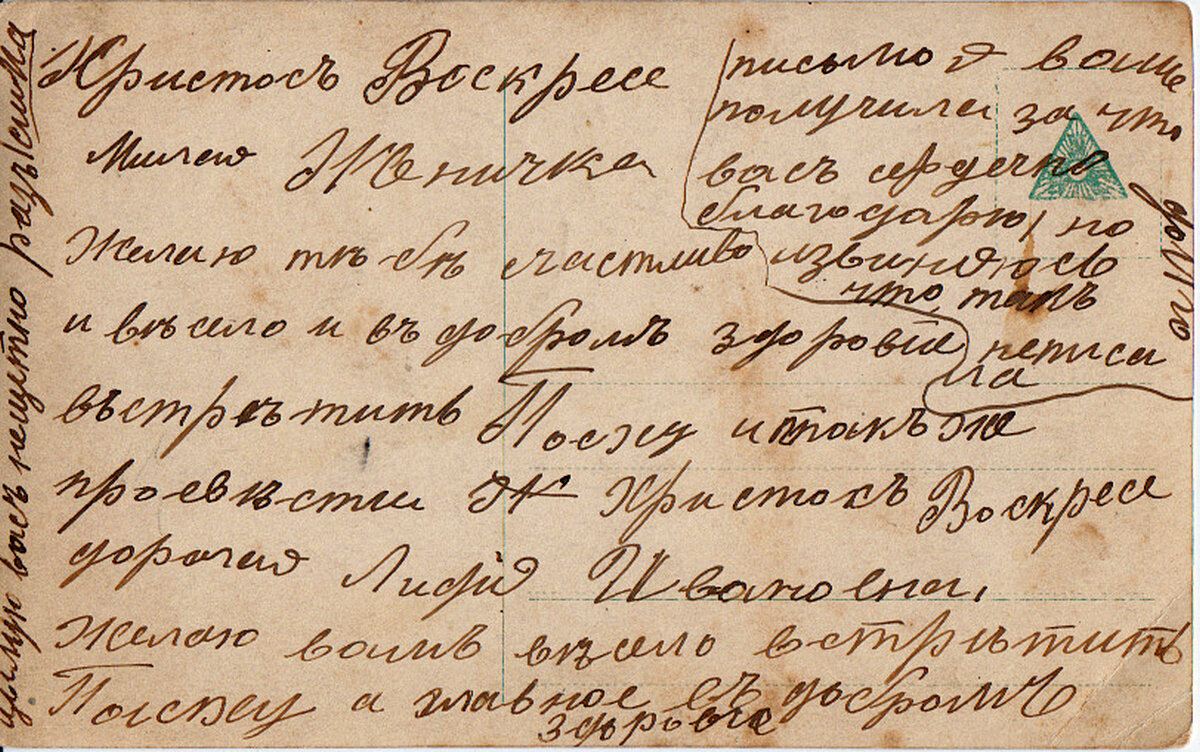 Христосъ Воскресе
Милая Женичка
Желаю тѣбѣ счастливо
и вѣсело и въ добромъ здоровіе
въстрѣтить Пасху и такъ же
провѣсти Ее Христосъ Воскресе
дорогая Лидія Ивановна,
Желаю вамъ вѣсело встрѣтить
Пасху а главное въ добромъ
здоровіе
письмо я ваше
получила за что
васъ сердечно
благодарю, но
извиняюсь
что такъ
долго
неписа
ла
цѣлую васъ несщетно разъ Сима